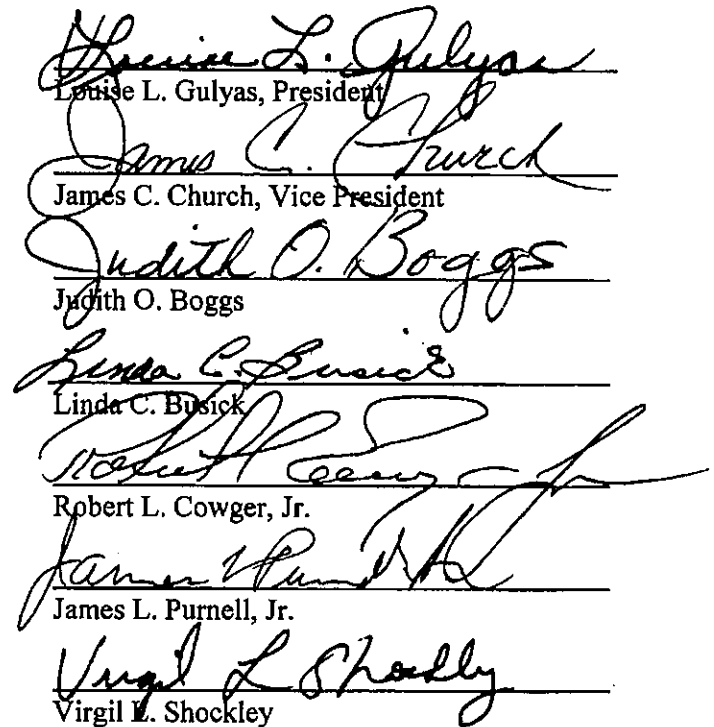 Louise L. Gulyas
Louise L. Gulyas, President
James C. Church
James C. Church, Vice President
Judith O. Boggs
Judith O. Boggs
Linda C. Busick
Linda C. Busick
Robert L Cowger Jr
Robert L. Cowger, Jr.
James L Purnell Jr
James L. Purnell, Jr.
Virgil L Shockley
Virgil L. Shockley